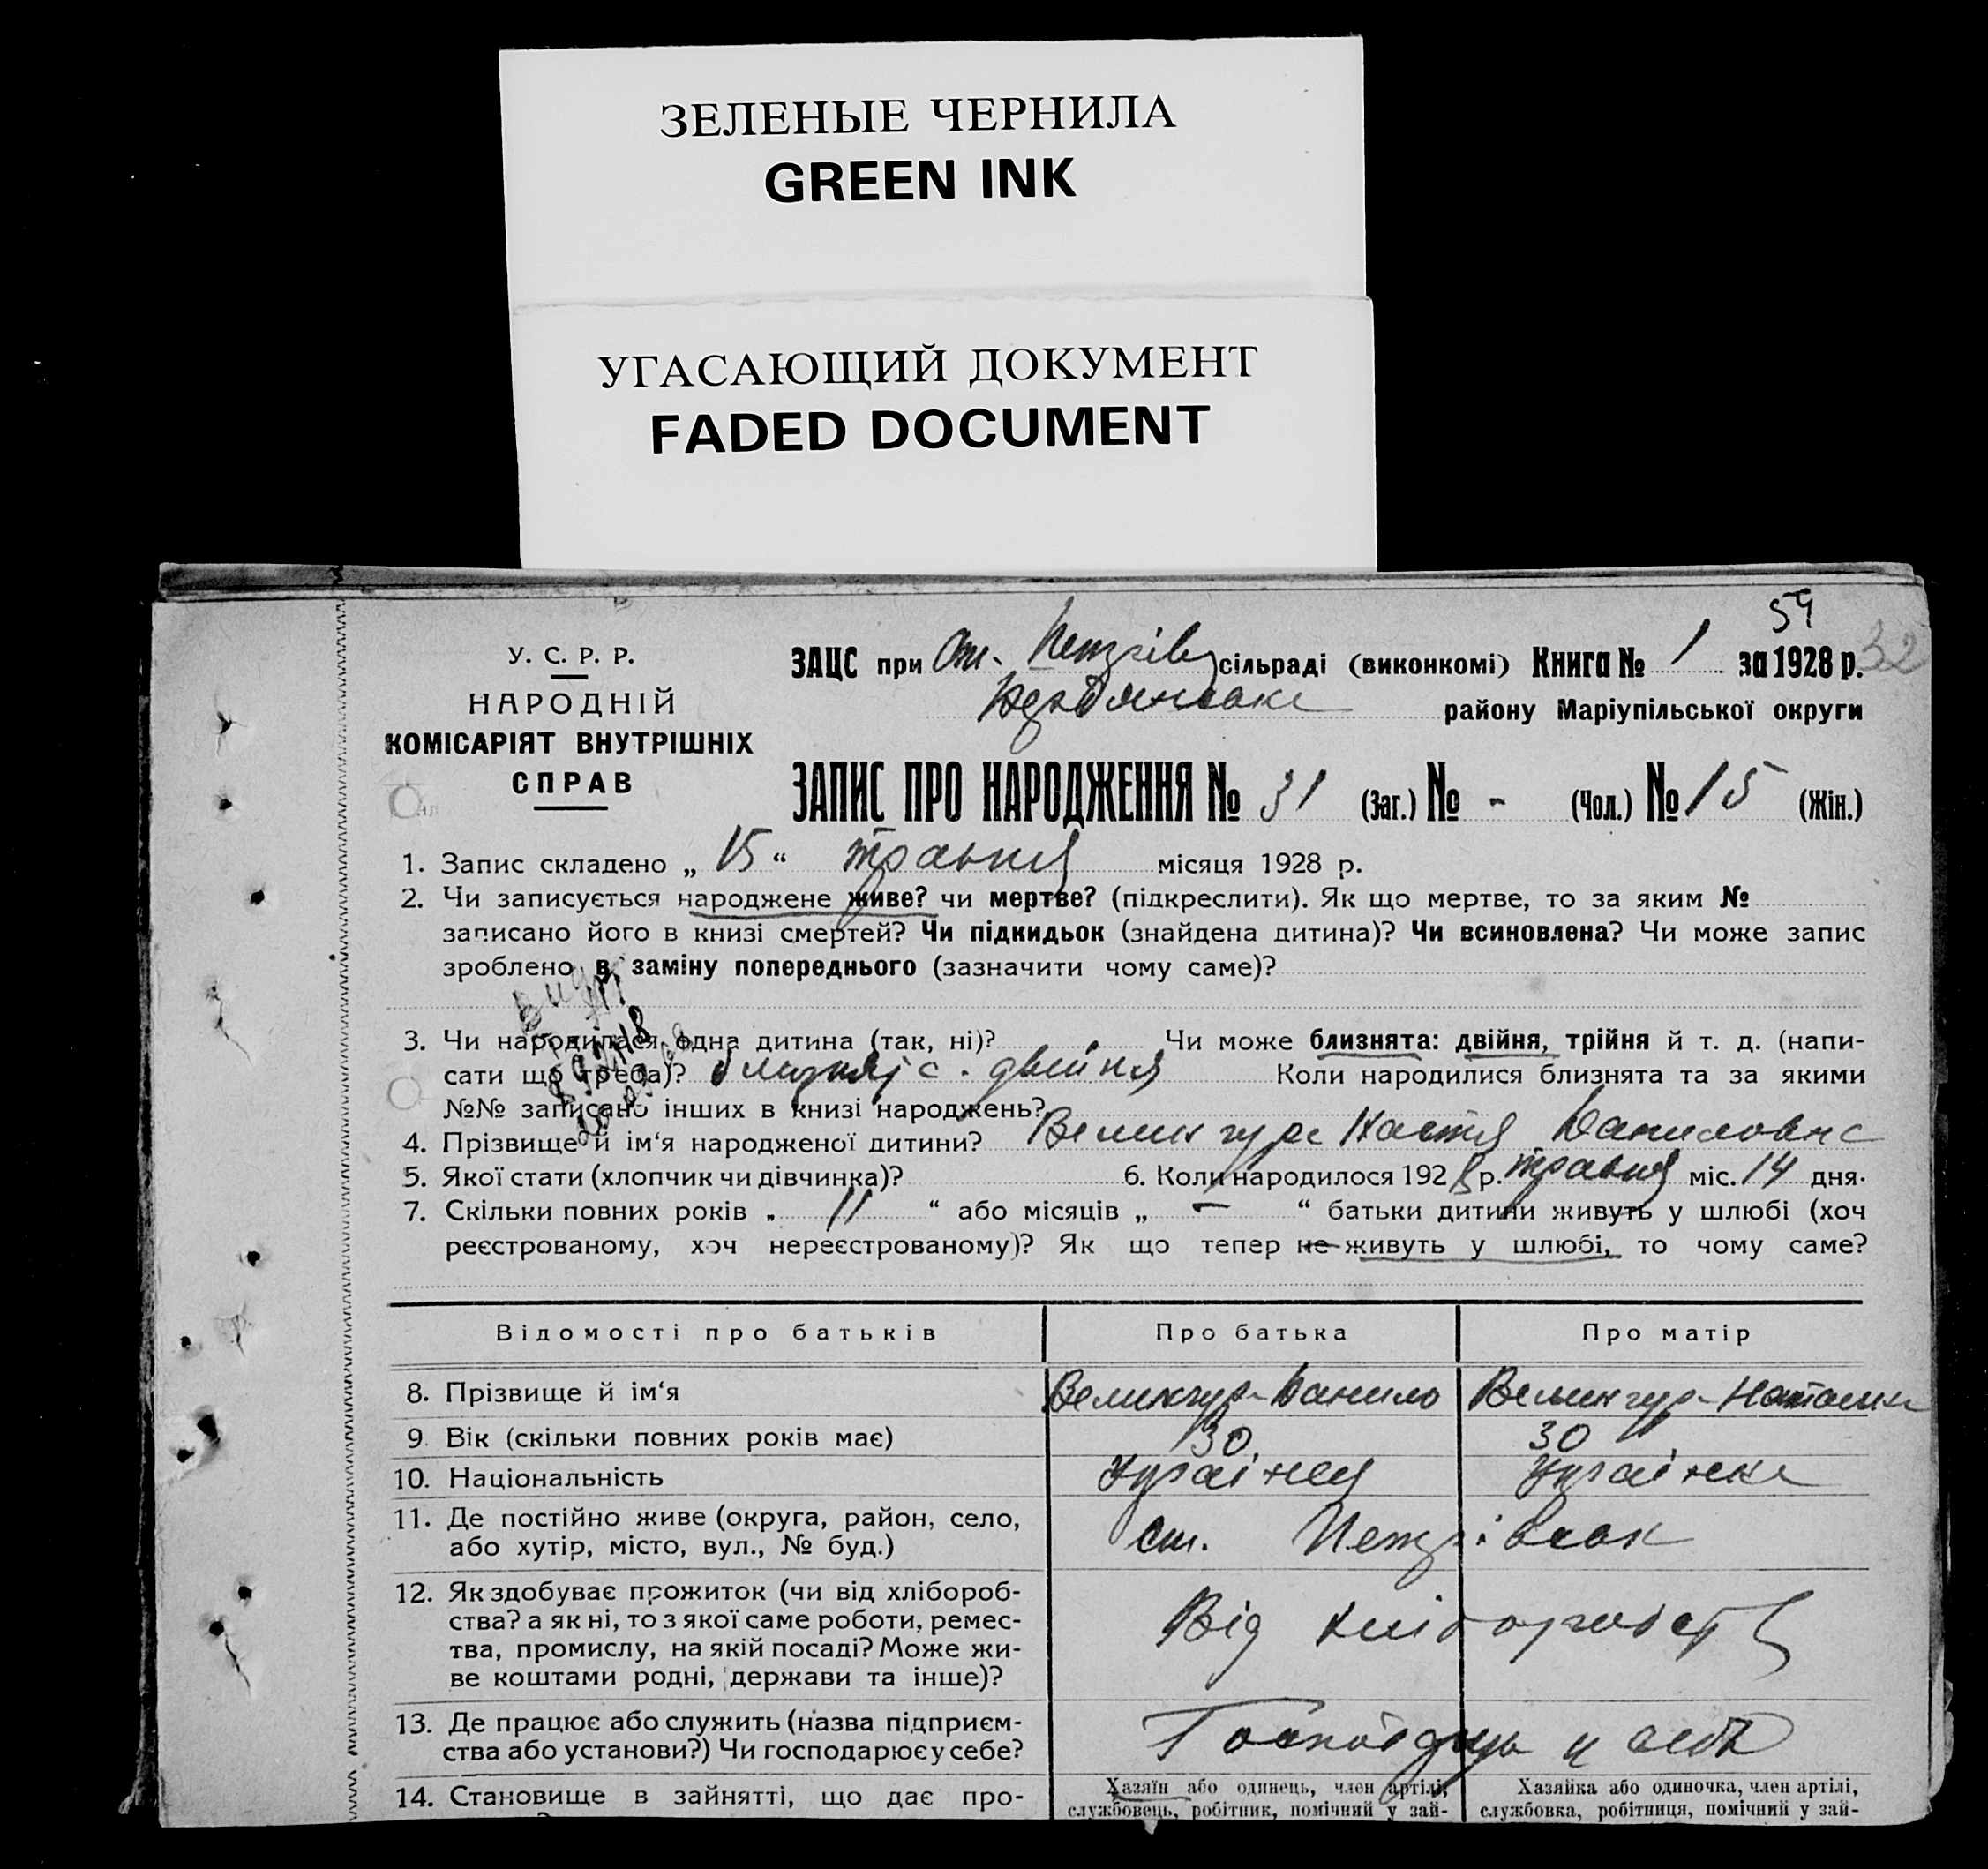 ЗЕЛЕНЫЕ ЧЕРНИЛА
GREEN INK
УГАСАЮЩИЙ ДОКУМЕНТ
FADED DOCUMENT
54
32
У. С. Р. Р.
НАРОДНІЙ
КОМІСАРІЯТ ВНУТРІШНІХ
СПРАВ
ЗАЦС при Ст. сільраді (виконкомі) Книга № 1 за 1928 р.
району Маріупільської округи
ЗАПИС ПРО НАРОДЖЕННЯ № 31 (Заг.) № - (Чол.) № 15 (Жін.)
1. Запис складено „ 15 “ травня місяця 1928 р.
2. Чи записується народжене живе? чи мертве? (підкреслити). Як що мертве, то за яким №
записано його в книзі смертей? Чи підкидьок (знайдена дитина)? Чи всиновлена? Чи може запис
зроблено в заміну попереднього (зазначити чому саме)?
3. Чи народилася одна дитина (так, ні)? Чи може близнята: двійня, трійня й т. д. (напи-
сати що треба)? двійня Коли народилися близнята та за якими
№№ записано інших в книзі народжень?
4. Прізвище й ім‘я народженої дитини? Великгура Настя Даниловна
5. Якої стати (хлопчик чи дівчинка)? 6. Коли народилося 1928 р. травня міс. 14 дня.
7. Скільки повних років „ 11 “ або місяців „ — “ батьки дитини живуть у шлюбі (хоч
реєстрованому, хоч нереєстрованому)? Як що тепер не живуть у шлюбі, то чому саме?
Відомості про батьків Про батька Про матір
8. Прізвище й ім‘я Великгура Данило Великгура Наталия
9. Вік (скільки повних років має) 30 30
10. Національність Українец Українка
11. Де постійно живе (округа, район, село,
або хутір, місто, вул., № буд.) ст. Петрівськ
12. Як здобуває прожиток (чи від хлібороб-
ства? а як ні, то з якої саме роботи, ремес-
тва, промислу, на якій посаді? Може жи-
ве коштами родні, держави та інше)? Від хліборобств
13. Де працює або служить (назва підприєм-
ства або установи?) Чи господарює у себе? у себе
14. Становище в зайнятті, що дає про- Хазяїн або одинець, член артілі, Хазяйка або одиночка, член артілі,
службовець, робітник, помічний у зай- службовка, робітниця, помічний у зай-